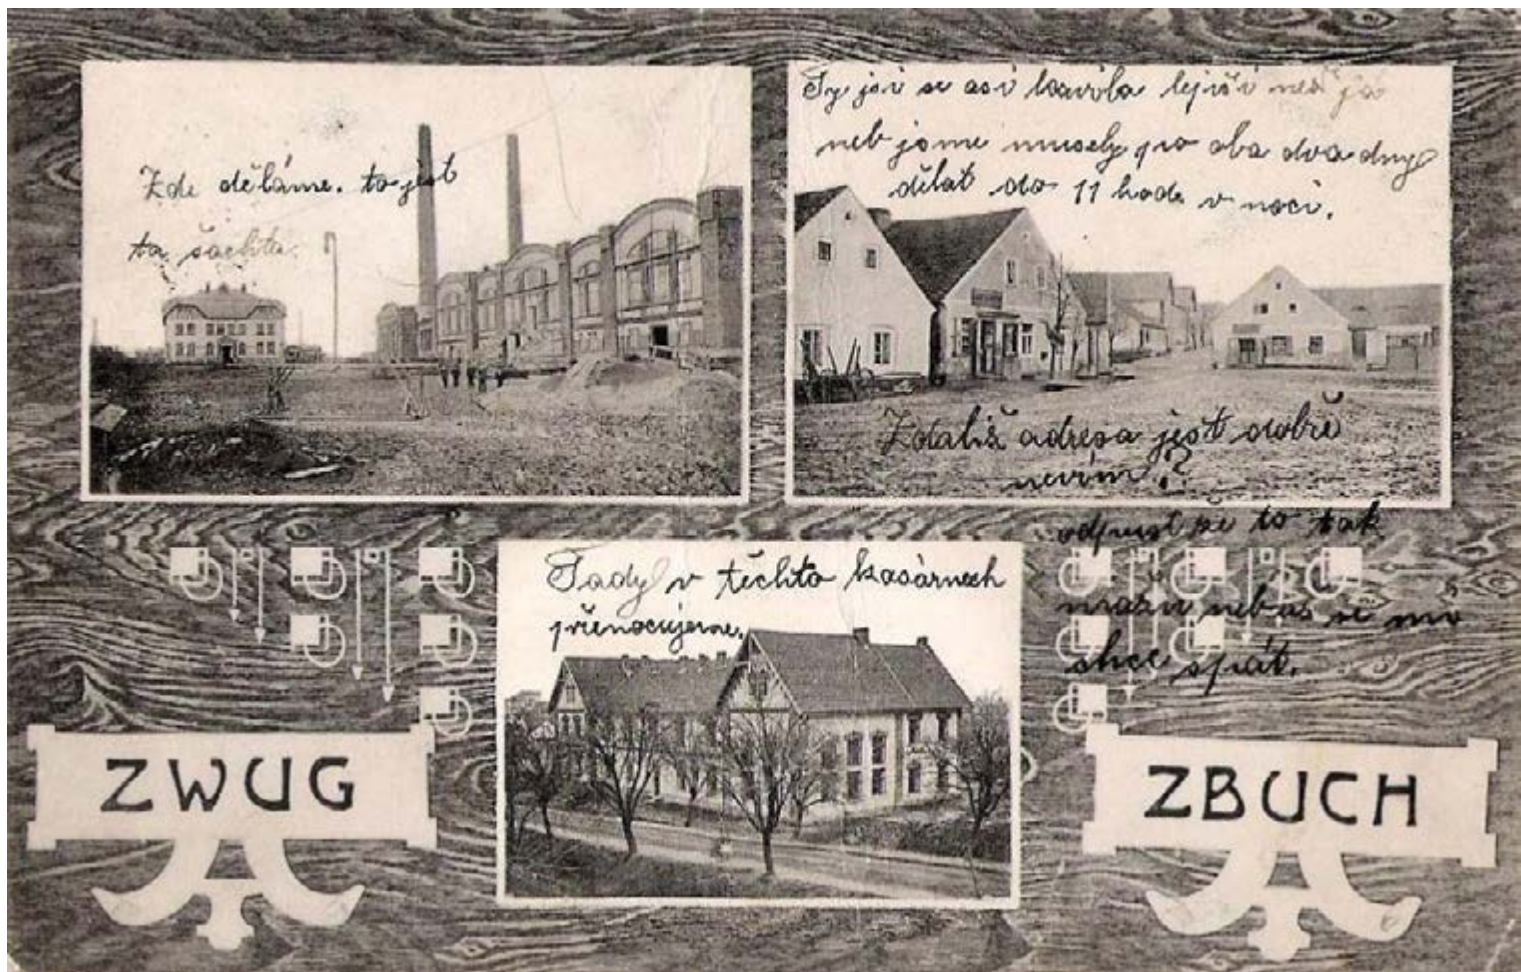 Zde děláme. to jest
ta šachta.
Ty jsi se asi bavila lejší než já
neb jsme musely pro oba dva dny
dělat do 11 hod. v noci.
Zdaliž adresa jest dobře
nevím?
odpust že to tak
mažu neb už se mi
chce spát.
Tady v těchto kasárnech
přenocujeme.
ZWUG
ZBUCH